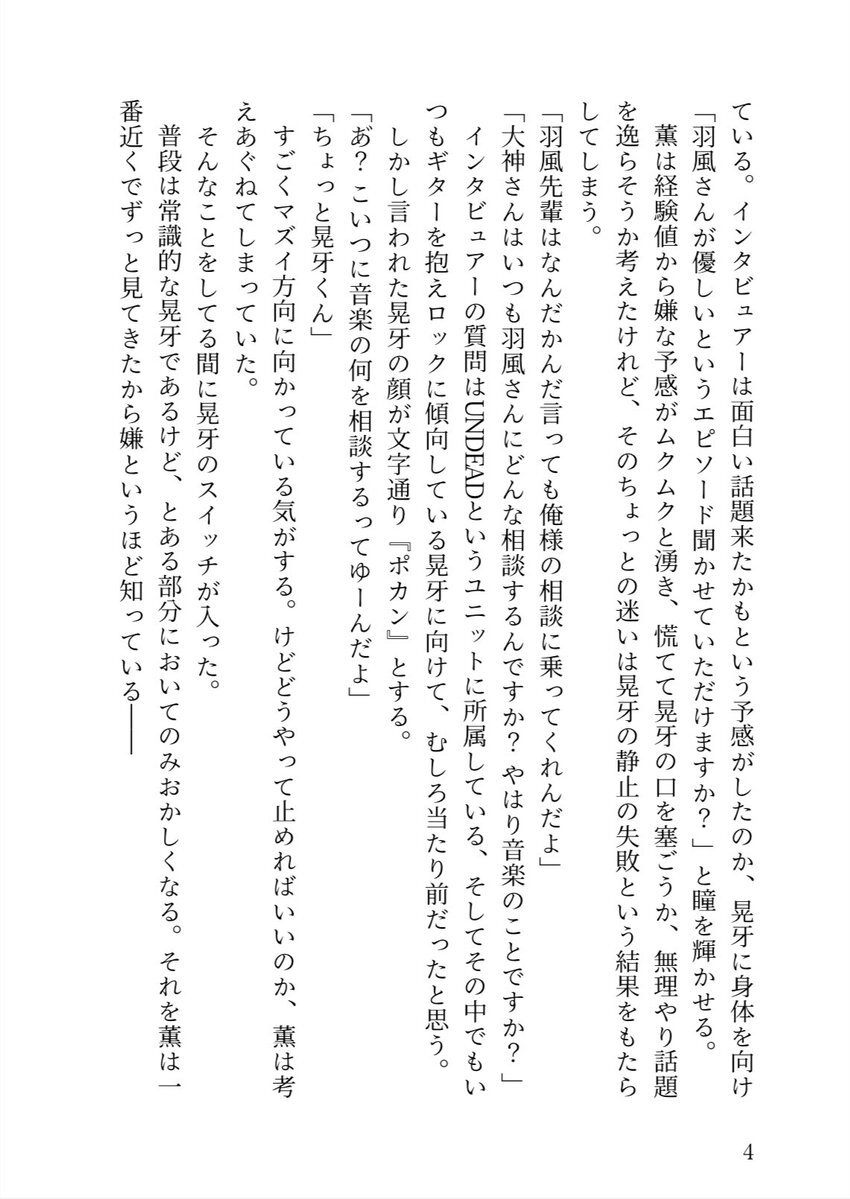 ている。インタビュアーは面白い話題来たかもという予感がしたのか、晃牙に身体を向け
「羽風さんが優しいというエピソード聞かせていただけますか？」と瞳を輝かせる。
　薫は経験値から嫌な予感がムクムクと湧き、慌てて晃牙の口を塞ごうか、無理やり話題
を逸らそうか考えたけれど、そのちょっとの迷いは晃牙の静止の失敗という結果をもたら
してしまう。
「羽風先輩はなんだかんだ言っても俺様の相談に乗ってくれんだよ」
「大神さんはいつも羽風さんにどんな相談するんですか？ やはり音楽のことですか？」
　インタビュアーの質問はUNDEADというユニットに所属している、そしてその中でもい
つもギターを抱えロックに傾向している晃牙に向けて、むしろ当たり前だったと思う。
　しかし言われた晃牙の顔が文字通り『ポカン』とする。
「あ゙？ こいつに音楽の何を相談するってゆーんだよ」
「ちょっと晃牙くん」
　すごくマズイ方向に向かっている気がする。けどどうやって止めればいいのか、薫は考
えあぐねてしまっていた。
　そんなことをしてる間に晃牙のスイッチが入った。
　普段は常識的な晃牙であるけど、とある部分においてのみおかしくなる。それを薫は一
番近くでずっと見てきたから嫌というほど知っている――
4